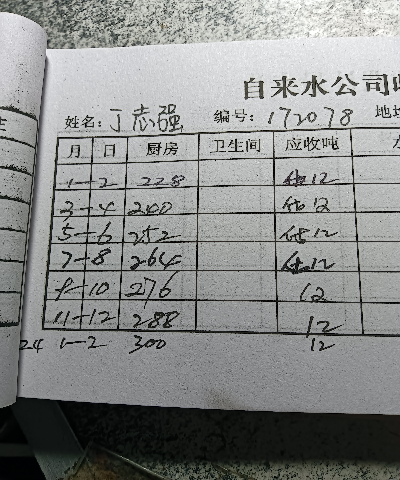 自来水公司收
姓名: 丁志强 编号: 172078 地址
月 日 厨房 卫生间 应收吨
1-2 228 12
3-4 240 12
5-6 252 12
7-8 264 12
9-10 276 12
11-12 288 12
24 1-2 300 12